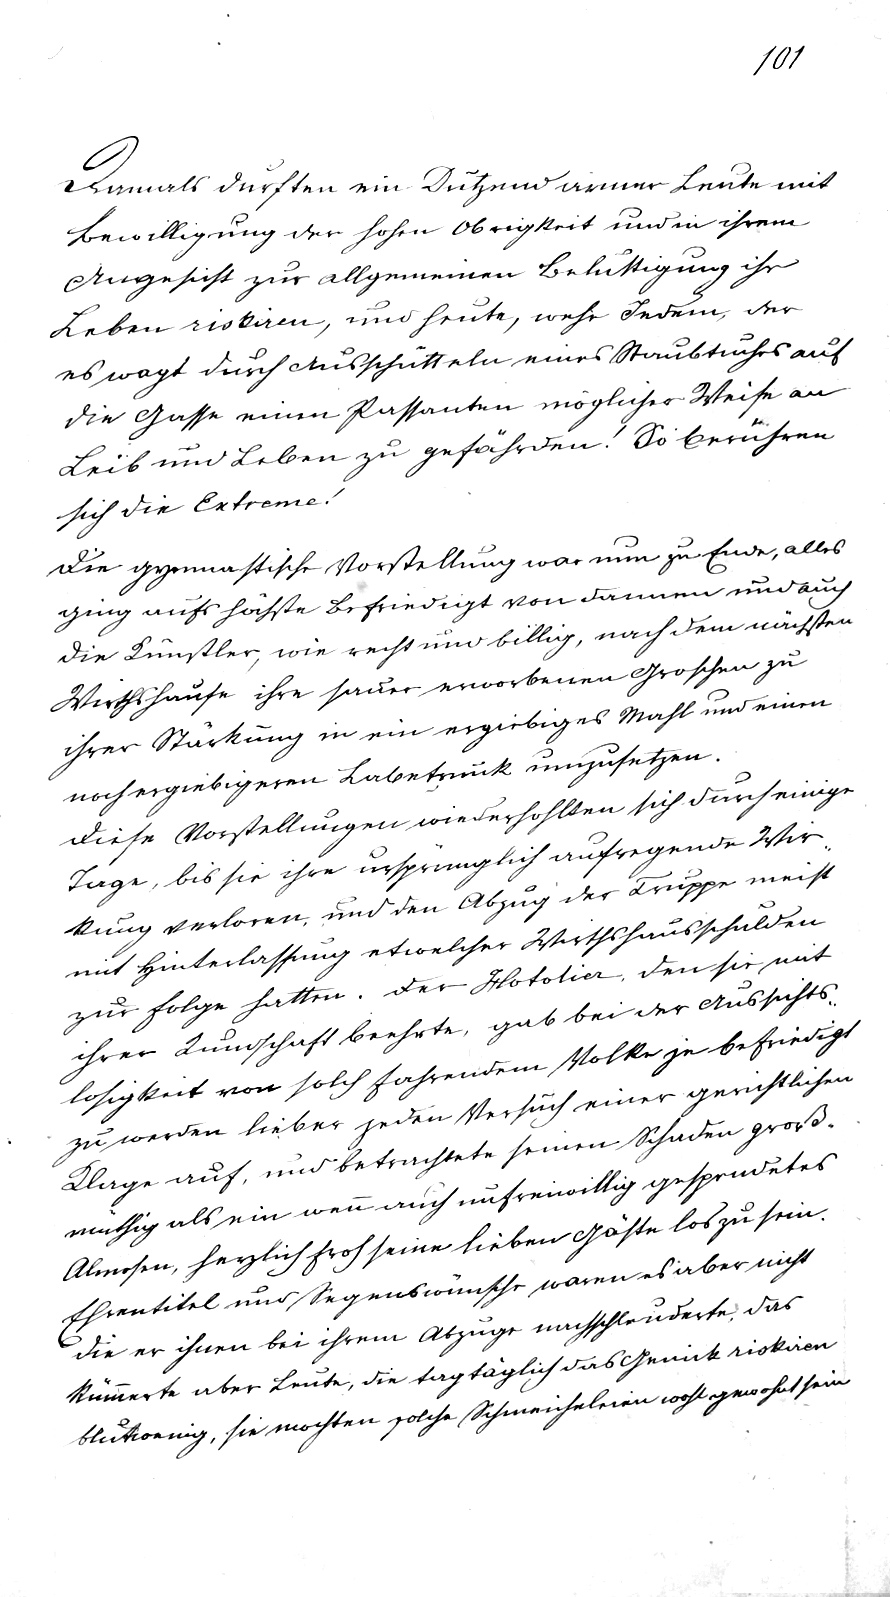 101
Damals durften ein Dutzend armer Leute mit
Bewilligung der hohen Obrigkeit und in ihrem
Angesicht zur allgemeinen Belustigung ihr
Leben riskiren, und heute, wehe Jedem, der
es wagt durch Ausschütteln eines Staubtuches auf
die Gasse einen Passanten möglicher Weise an
Leib und Leben zu gefährden! So berühren
sich die Extreme!
Die gymnastische Vorstellung war nun zu Ende, alles
ging aufs höchste befriedigt von dannen und auch
die Künstler, wie recht und billig, nach dem nächsten
Wirthshause ihre sauer erworbenen Groschen zu
ihrer Stärkung in ein ergiebiges Mahl und einen
noch ergiebigeren Labetrunk umzusetzen.
Diese Vorstellungen wiederhohlten sich durch einige
Tage, bis sie ihre ursprünglich aufregende Wir„
kung verloren, und den Abzug der Truppe meist
mit Hinterlassung etwelcher Wirthshausschulden
zur Folge hatten. Der Hotolier, den sie mit
ihrer Kundschaft beehrte, gab bei der Aussichts„
losigkeit von solch fahrendem Volke je befriedigt
zu werden lieber jeden Versuch einer gerichtlichen
Klage auf, und betrachtete seinen Schaden groß„
müthig als ein wenn auch unfreiwillig gespendetes
Almosen, herzlich froh seine lieben Gäste los zu sein.
Ehrentitel und Segenswünsche waren es aber nicht
die er ihnen bei ihrem Abzuge nachschleuderte, das
kümmerte aber Leute, die tagtäglich das Genick riskiren
blutwenig, sie mochten solche Schmeicheleien wohl gewohnt sein